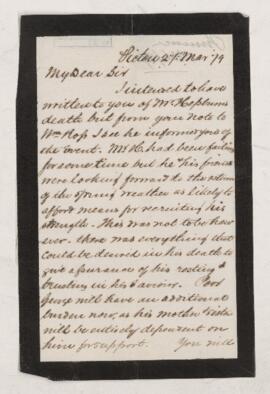 Pictou 27 Mar '79
My Dear Sir
I intended to have
written to you of Mr Hepburn's
death but from your note to
Wm Ross I see he informed you of
the event. Mr H. had been failing
for some time but he & his friends
were looking forward to the return
of the spring weather as likely to
afford means for recruiting his
strength. This was not to be how
ever. There was everything that
could be desired in his death to
give assurance of his resting &
trusting in his Saviour. Poor
George will have an additional
burden now, as his mother & sister
will be entirely dependent on
him for support. You will